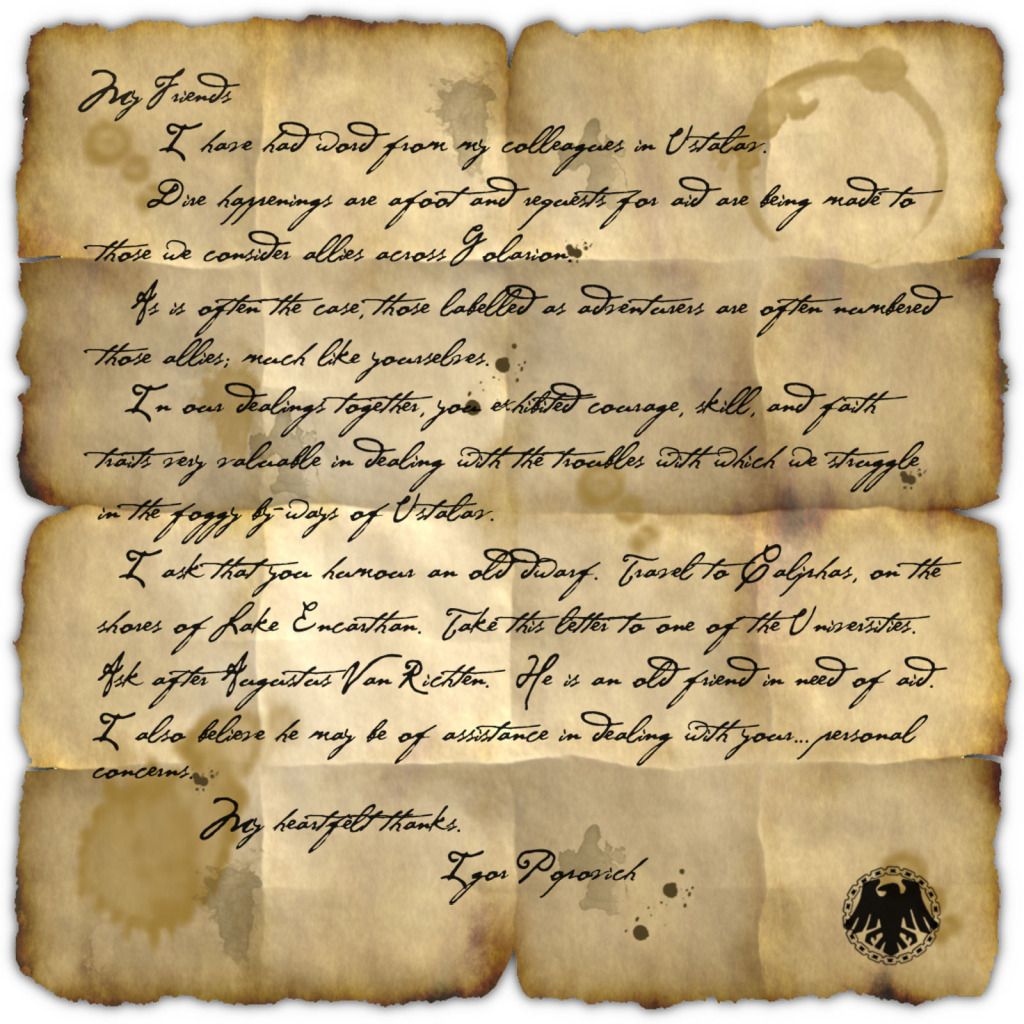 My Friends
I have had word from my colleagues in Ustalav.
Dire happenings are afoot and requests for aid are being made to
those we consider allies across Golarion.
As is often the case, those labelled as adventurers are often numbered
those allies; much like yourselves.
In our dealings together, you exhibited courage, skill, and faith
traits very valuable in dealing with the troubles with which we struggle
in the foggy by-ways of Ustalav.
I ask that you humour an old dwarf. Travel to Caliphas, on the
shores of Lake Encarthan. Take this letter to one of the Universities.
Ask after Augustus Van Richten. He is an old friend in need of aid.
I also believe he may be of assistance in dealing with your... personal
concerns.
My heartfelt thanks.
Igor